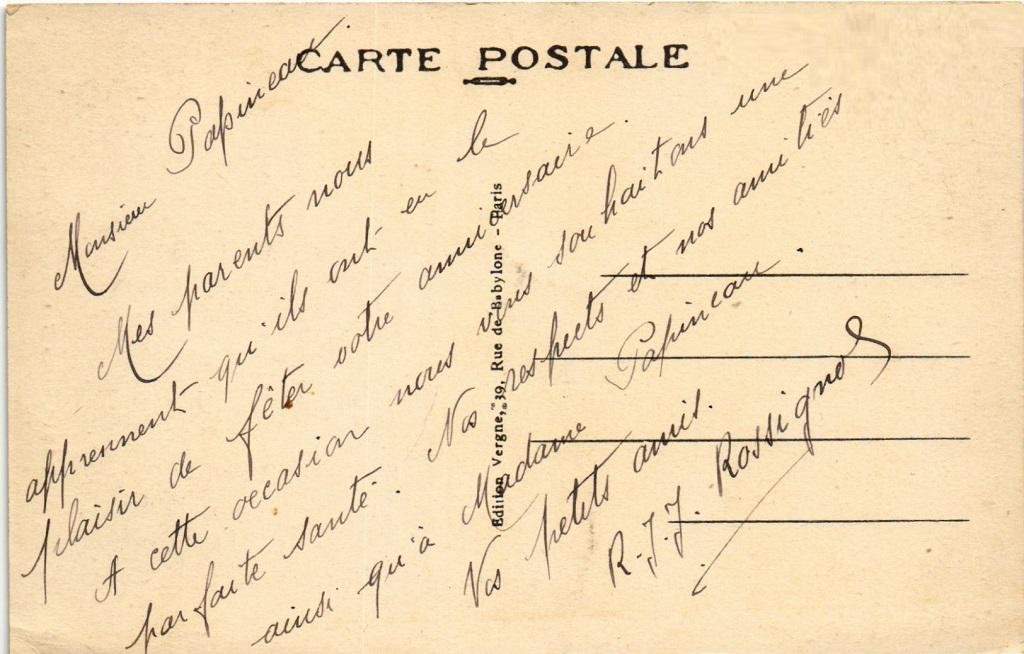 CARTE POSTALE
Monsieur Papineau.
Mes parents nous
apprennent qu'ils ont eu le
plaisir de fêter votre anniversaire.
A cette occasion nous vous souhaitons une
parfaite santé. Nos respects et nos amitiés
ainsi qu'à Madame Papineau.
Vos petits amis.
R.J.J. Rossignol
Edition Vergne, 39, Rue de Babylone - Paris